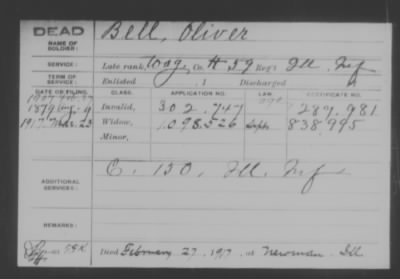 DEAD
NAME OF SOLDIER:
Bell, Oliver
SERVICE:
Late rank, Co. H 59 Reg't Ill. Inf
TERM OF SERVICE:
Enlisted , 1 Discharged , 1
DATE OF FILING.
CLASS.
APPLICATION NO.
LAW.
CERTIFICATE NO.
1879 Aug. 9
Invalid, 302.747 287.981
1917 Mar. 23
Widow, 1.098.526 838.995
Minor,
ADDITIONAL SERVICES:
C. 150, Ill. Inf
REMARKS:
Died February 27, 1917, at Newman Ill